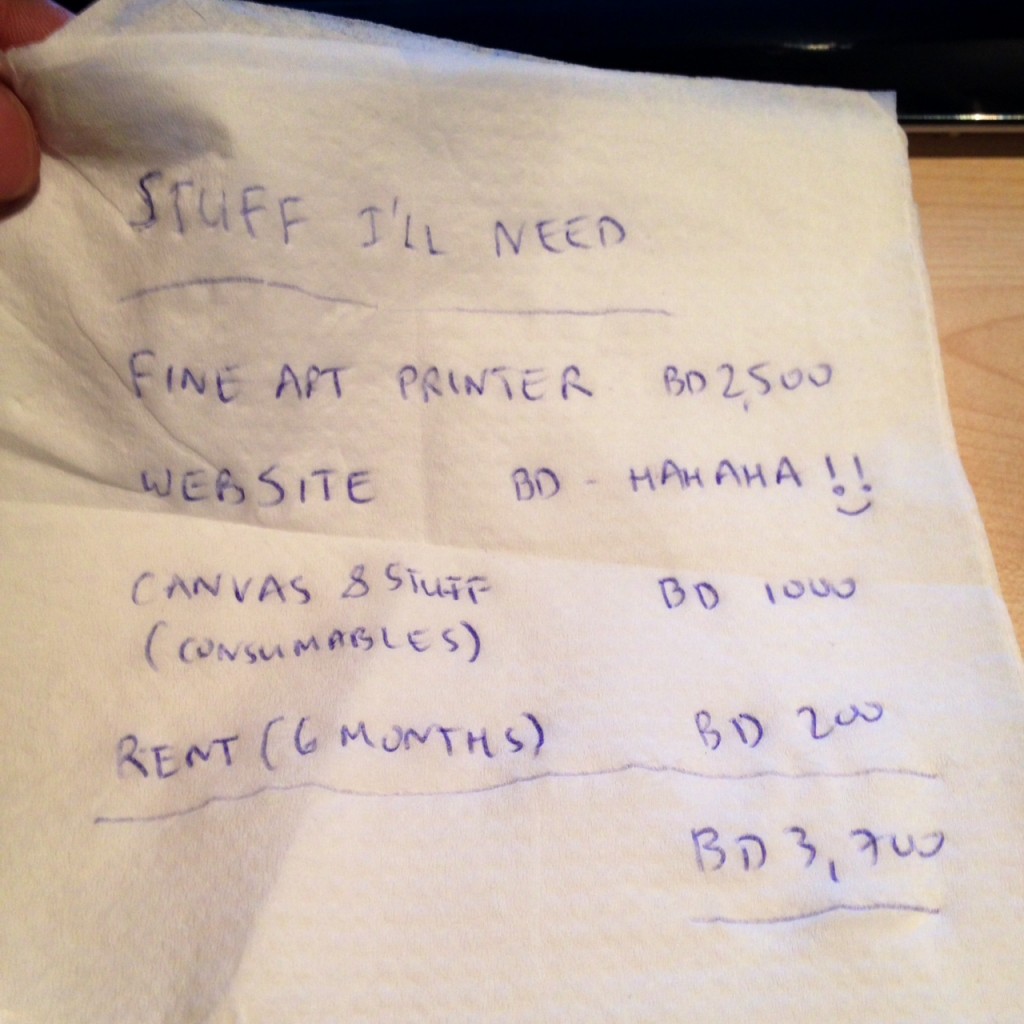 STUFF I'LL NEED
FINE ART PRINTER BD 2,500
WEBSITE BD - HAHAHA !!
CANVAS & STUFF BD 1000
(CONSUMABLES)
RENT (6 MONTHS) BD 200
BD 3,700